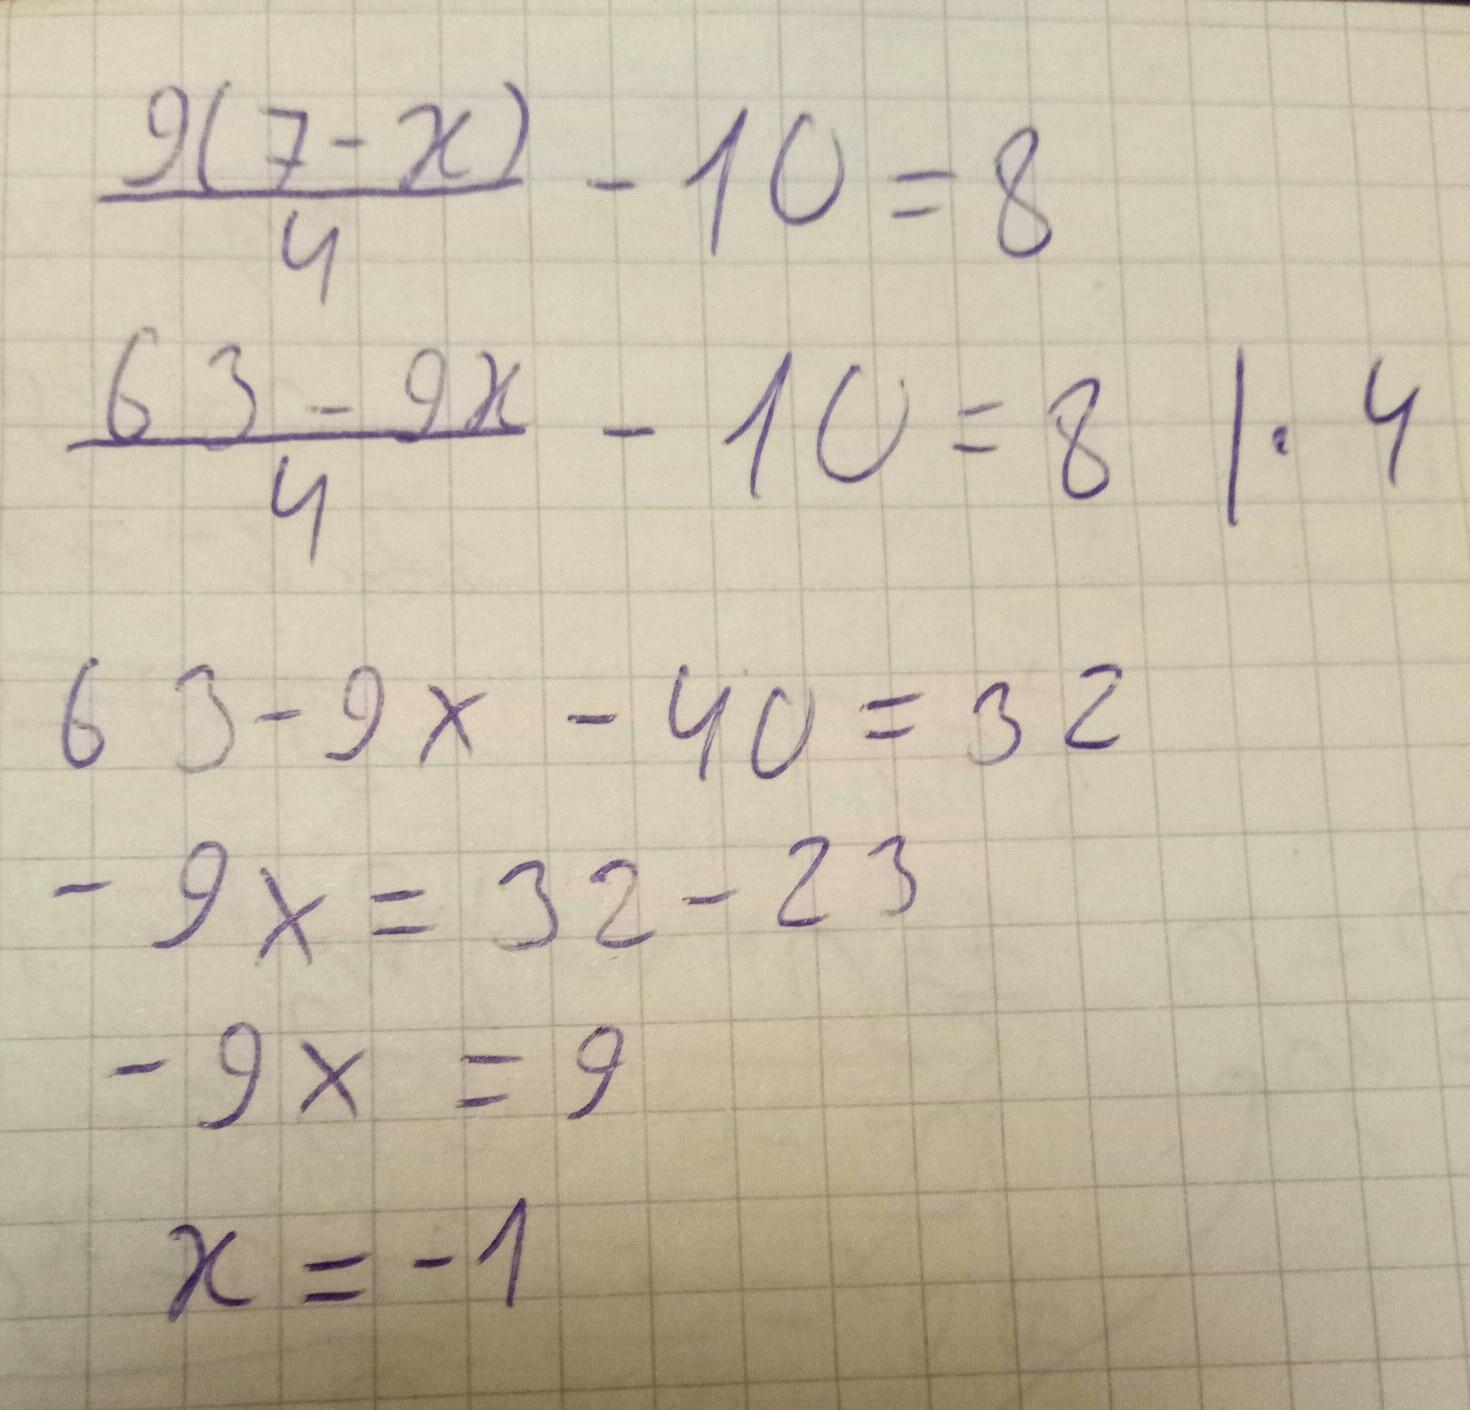 9(7-x)/4 - 10 = 8
63-9x/4 - 10 = 8 | · 4
63-9x - 40 = 32
-9x = 32 - 23
-9x = 9
x = -1